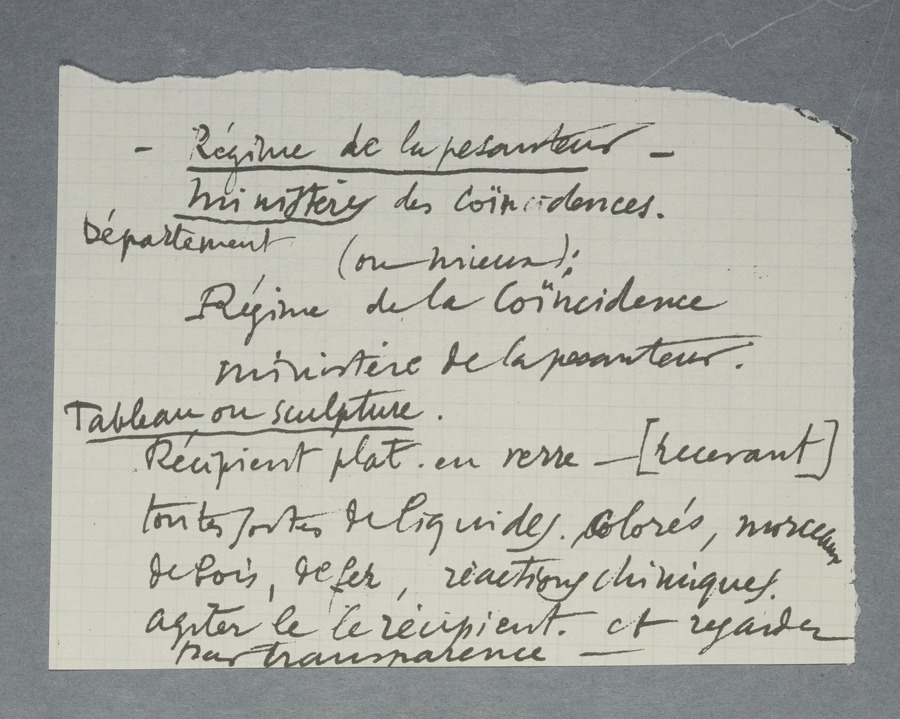 - Régime de la pesanteur -
Ministères des Coïncidences.
Département
(ou mieux):
Régime de la Coïncidence
ministère de la pesanteur.
Tableau ou sculpture.
Récipient plat. en verre — [recevant]
toutes sortes de liquides. Colorés, morceaux
de bois, de fer, réactions chimiques.
agiter le le récipient. et regarder
par transparence —